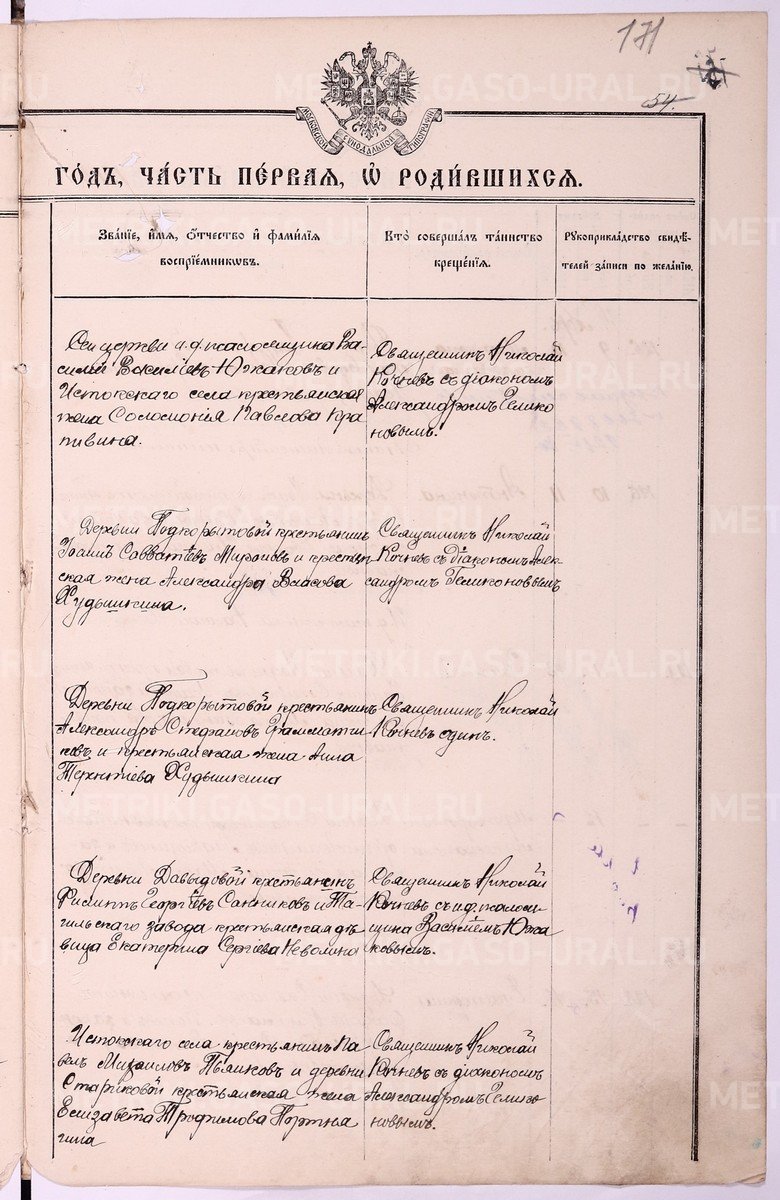 171
54.
МОСКОВСКОЙ СѴНОДАЛЬНОЙ ТИПОГРАФІИ
ГОДЪ, ЧАСТЬ ПЕРВАЯ, Ѡ РОДИВШИХСЯ.
Званіе, имя, отчество и фамилія
воспріемниковъ.
Кто совершалъ таинство
крещенія.
Рукоприкладство свидѣ-
телей записи по желанію.
Сей церкви и.д. псаломщика Ва-
силій Василіевъ Южаковъ и
Истокскаго села крестьянская
жена Соломонія Павлова Кра
пивина.
Священникъ Николай
Кочневъ съ діакономъ
Александромъ Гелико
новымъ.
Деревни Подкорытовой крестьянинъ
Іоаннъ Савватіевъ Мироновъ и крестьян
ская жена Александра Власова
Худышкина.
Священникъ Николай
Кочневъ съ діакономъ Алек-
сандромъ Геликоновымъ
Деревни Подкорытовой крестьянинъ
Александръ Стефановъ
ковъ и крестьянская жена Анна
Терентіева Худышкина
Священникъ Николай
Кочневъ одинъ.
Деревни Давыдовой крестьянинъ
Филиппъ Георгіевъ Санниковъ и Та-
гильскаго завода крестьянская дѣ
вица Екатерина Сергіева Неволина
Священникъ Николай
Кочневъ съ и.д. псалом
щика Василіемъ Южа
ковымъ.
Истокскаго села крестьянинъ Па
велъ Михаиловъ Пьянковъ и деревни
Стариковой крестьянская жена
Елизавета Трофимова Портня
гина
Священникъ Николай
Кочневъ съ діакономъ
Александромъ Гелико
новымъ.
METRIKI.GASO-URAL.RU